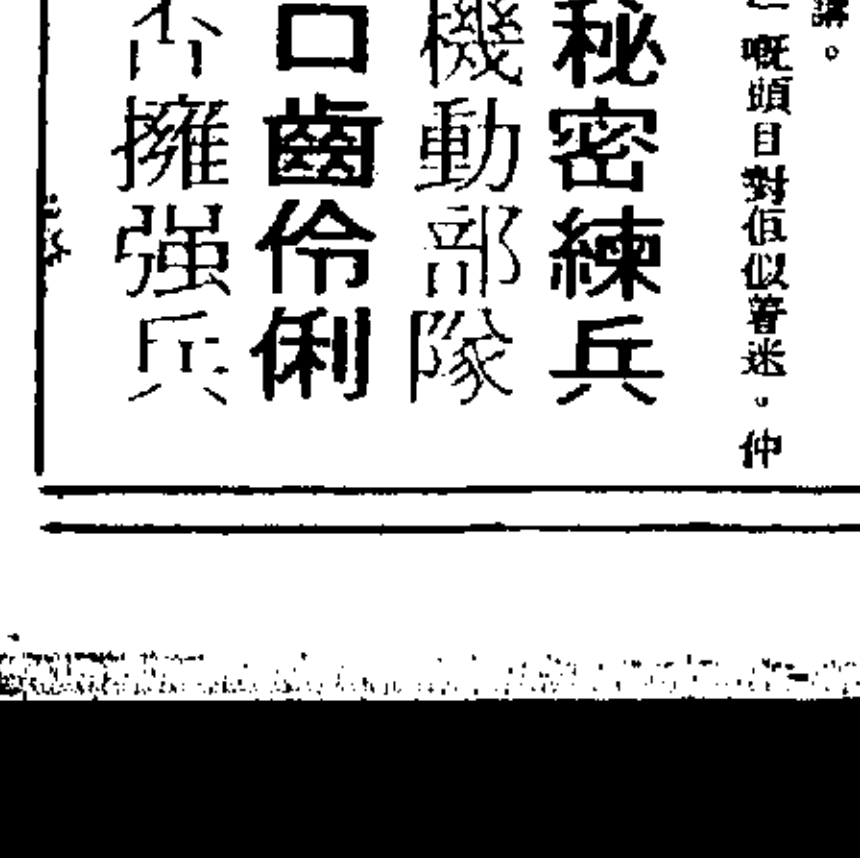 講。
嘅頭目對佢似着迷。仲
秘密練兵
機動部隊
口齒伶俐
否擁強兵